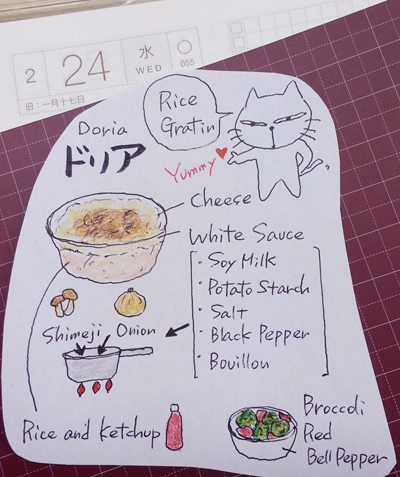 2
24
水
WED
055
旧:一月十七日
Rice
Gratin
Doria
ドリア
Yummy
Cheese
White Sauce
・Soy Milk
・Potato Starch
・Salt
・Black Pepper
・Bouillon
Shimeji Onion
Rice and Ketchup
Broccoli
Red
Bell Pepper